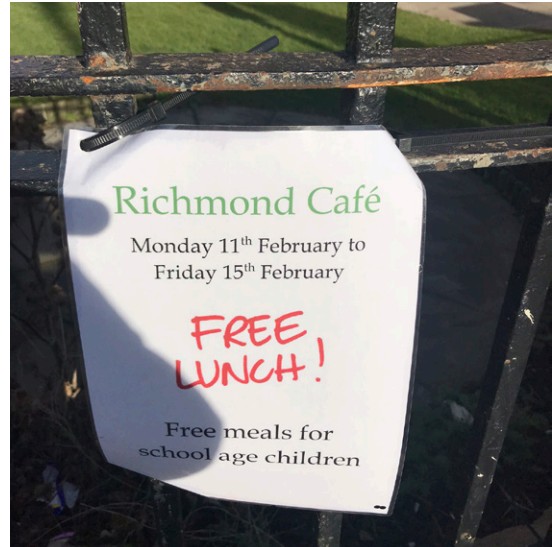 Richmond Café
Monday 11th February to
Friday 15th February
FREE
LUNCH!
Free meals for
school age children